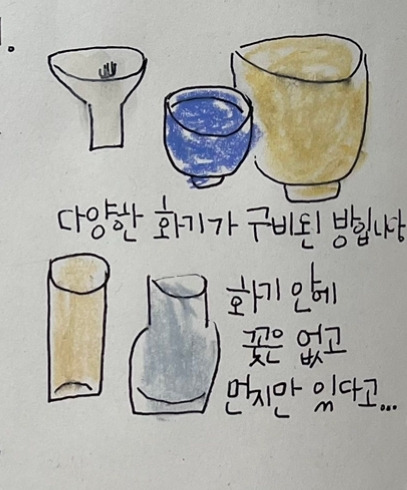 다양한 화기가 구비된 방입니당
화기 안에
꽃은 없고
먼지만 있다고...